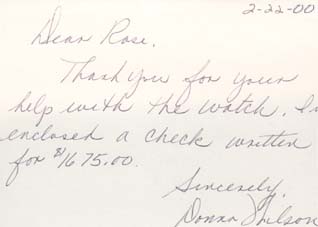 2-22-00
Dear Rose,
Thank you for your
help with the watch. I
enclosed a check written
for $1675.00.
Sincerely,
Donna Wilson